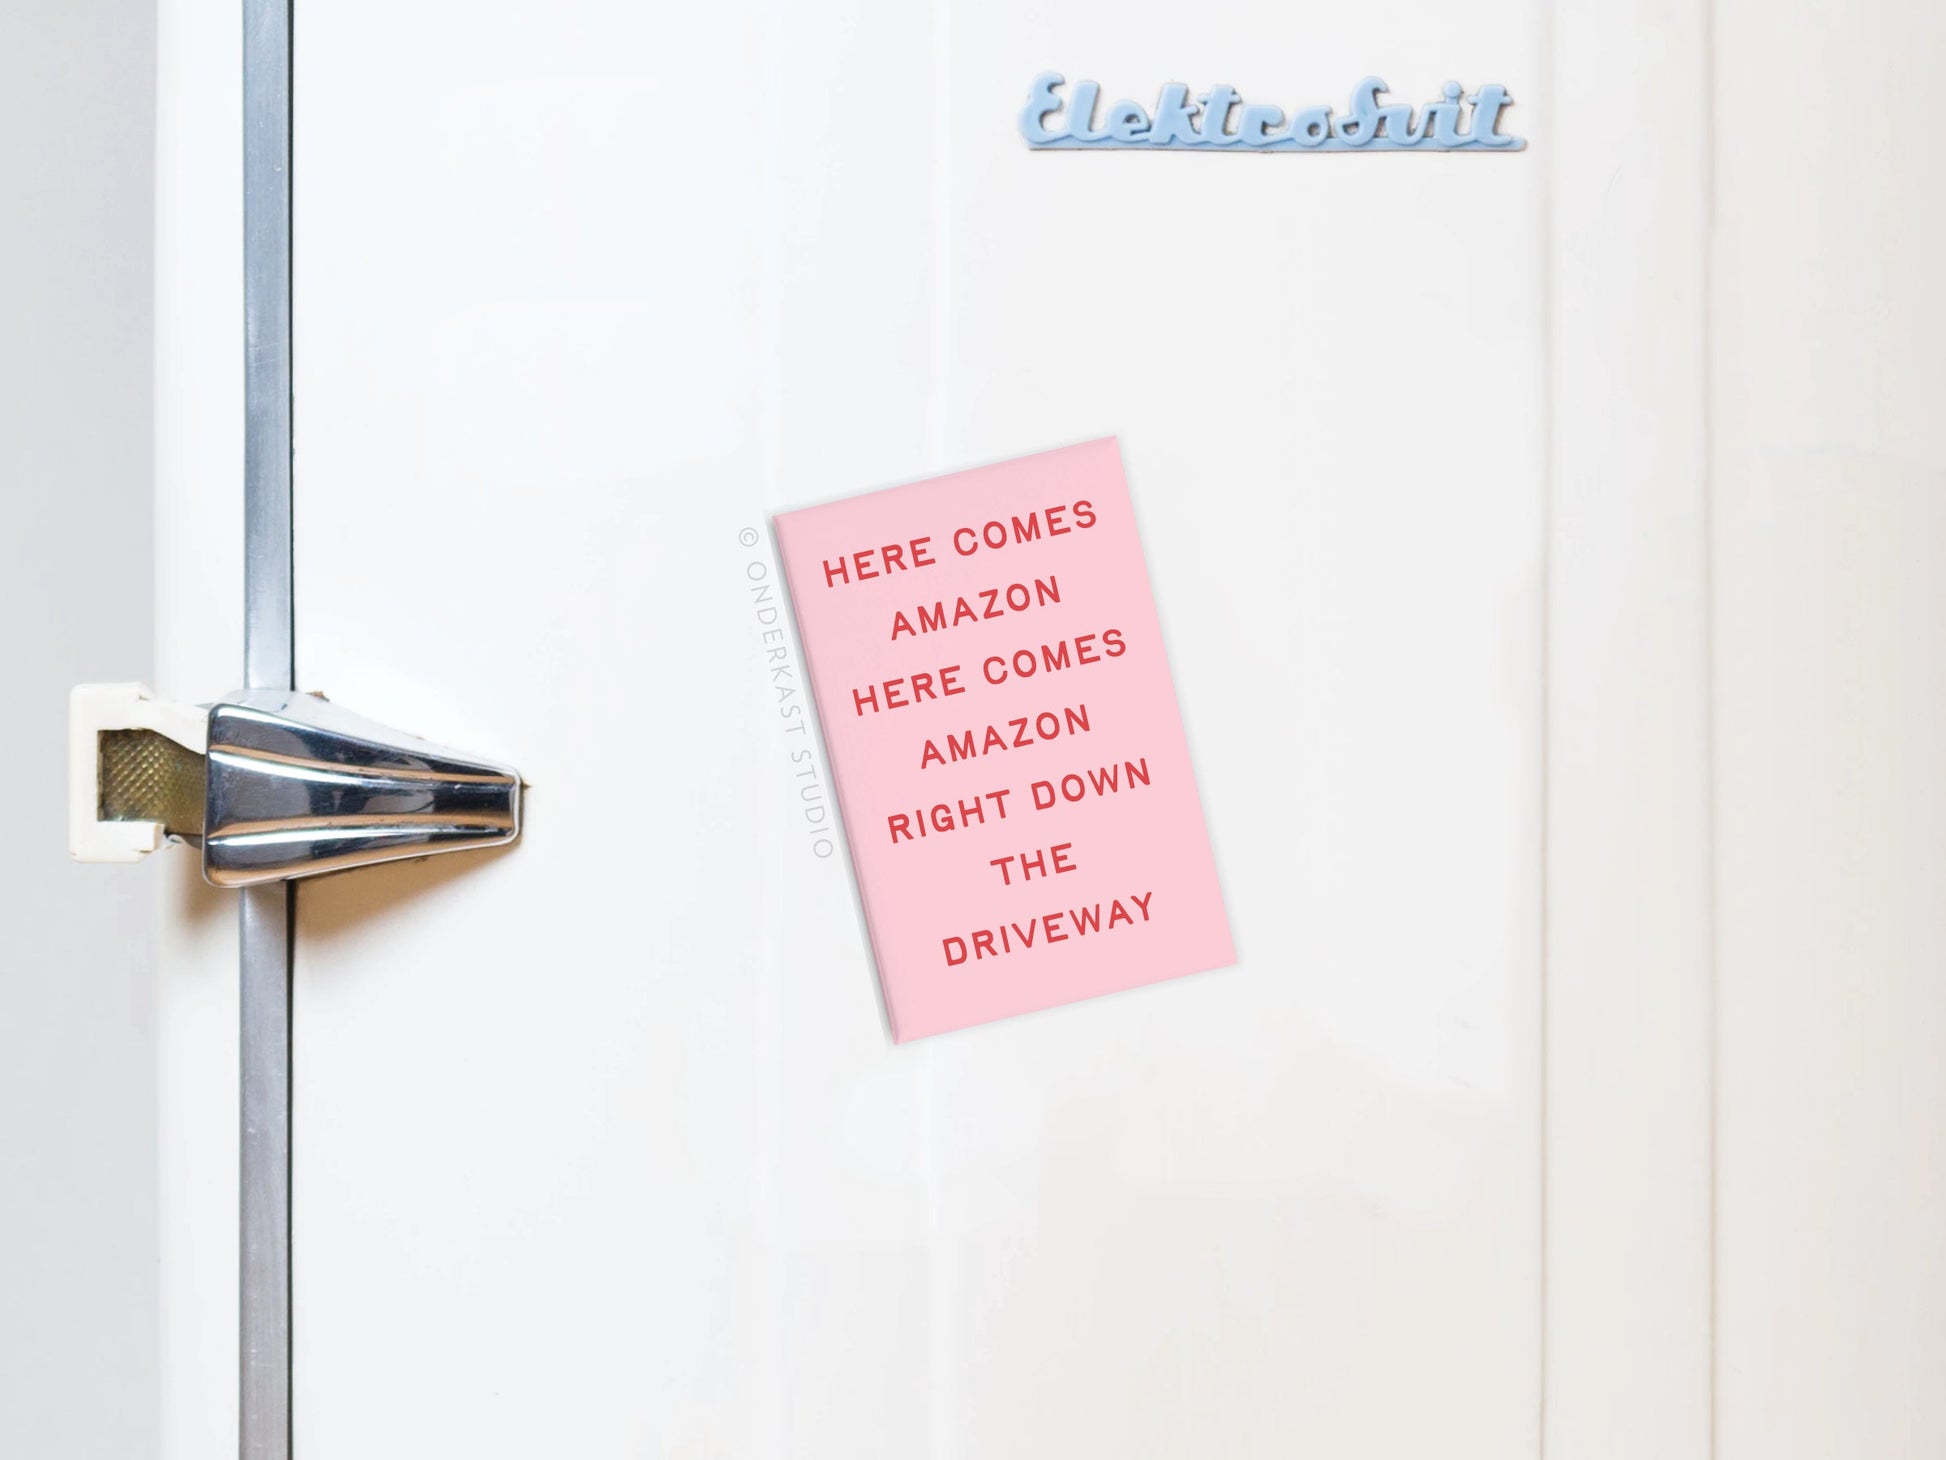 ElektroSvit
HERE COMES
AMAZON
HERE COMES
AMAZON
RIGHT DOWN
THE
DRIVEWAY
© ONDERKAST STUDIO